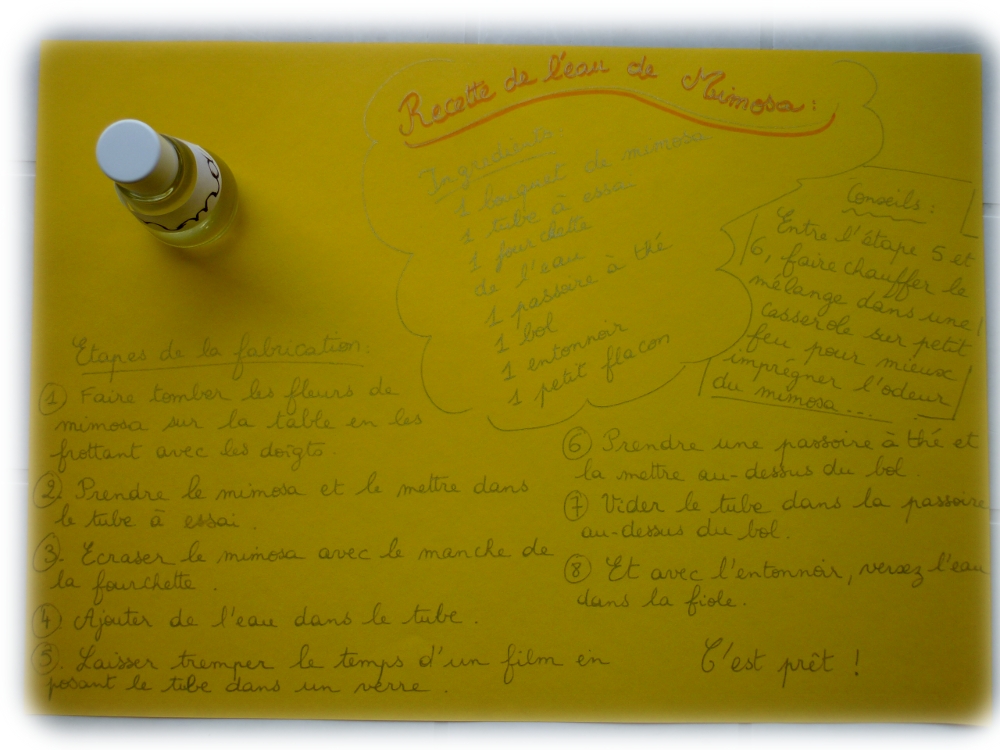 Recette de l'eau de Mimosa :
Ingrédients.
1 bouquet de mimosa
1 tube à essai
1 fourchette
de l'eau
1 passoire à thé
1 bol
1 entonnoir
1 petit flacon
Conseils :
Entre l'étape 5 et
6, faire chauffer le
mélange dans une
casserole sur petit
feu pour mieux
imprégner l'odeur
du mimosa...
Etapes de la fabrication:
1 Faire tomber les fleurs de
mimosa sur la table en les
frottant avec les doïgts.
2. Prendre le mimosa et le mettre dans
le tube à essai.
3. Ecraser le mimosa avec le manche de
la fourchette.
4 Ajouter de l'eau dans le tube.
5. Laisser tremper le temps d'un film en
posant le tube dans un verre.
6 Prendre une passoire à thé et
la mettre au-dessus du bol.
7 Vider le tube dans la passoire
au-dessus du bol.
8 Et avec l'entonnoir, versez l'eau
dans la fiole.
C'est prêt !